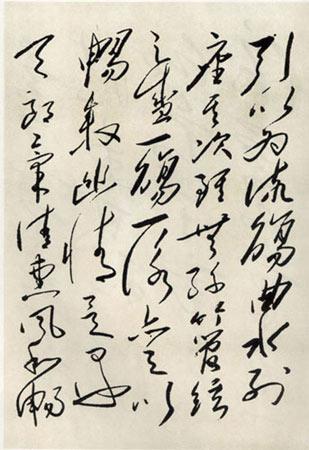 引以為流觴曲水列
座其次雖無絲竹管絃
之盛一觴一詠亦足以
暢敘幽情是日也
天朗氣清惠風和暢